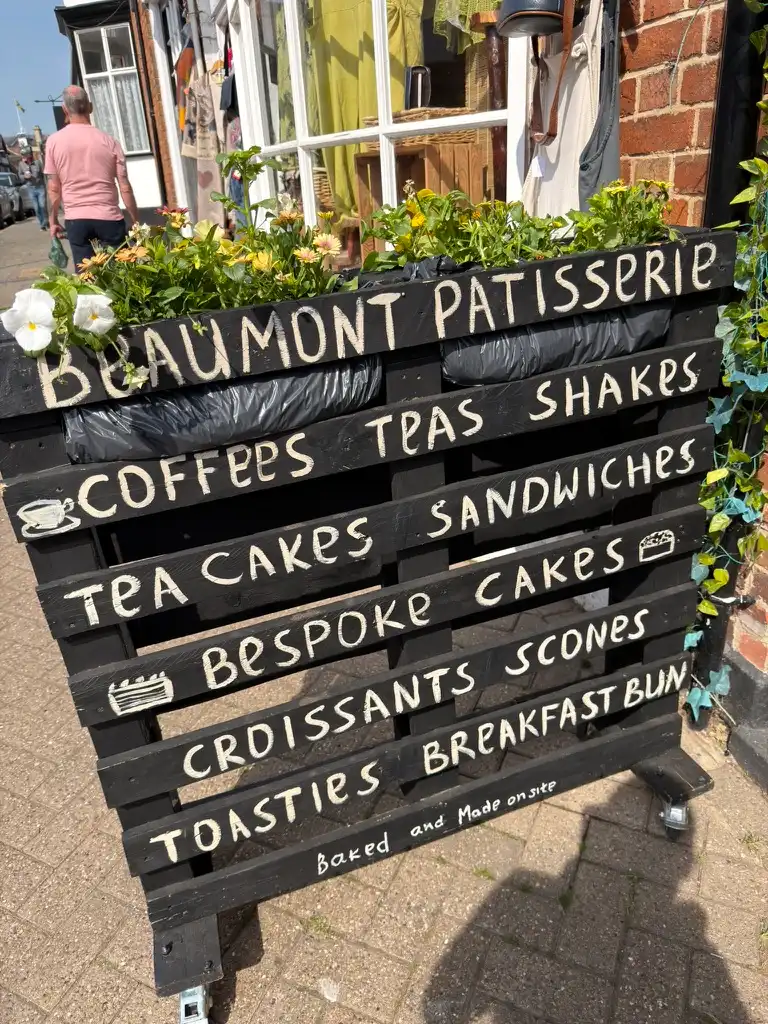 BEAUMONT PATISSERIE
COFFEES TEAS SHAKES
TEACAKES SANDWICHES
BESPOKE CAKES
CROISSANTS SCONES
TOASTIES BREAKFAST BUN
Baked and Made onsite